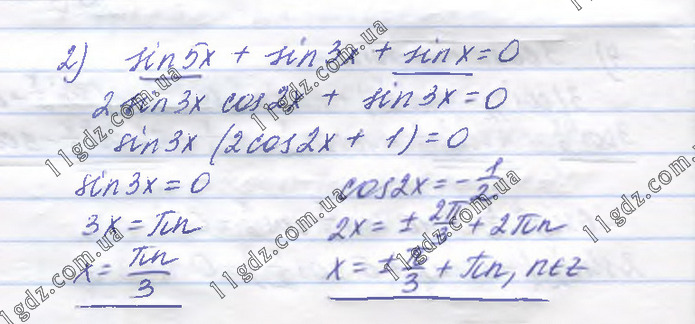 2) sin5x + sin3x + sinx = 0
2 sin3x cos2x + sin3x = 0
sin3x (2cos2x + 1) = 0
sin3x = 0
3x = πn
x = πn/3
cos2x = -1/2
2x = ± 2π/3 + 2πn
x = ± π/3 + πn, n∈Z
11gdz.com.ua
11gdz.com.ua
11gdz.com.ua
11gdz.com.ua
11gdz.com.ua
11gdz.com.ua
11gdz.com.ua